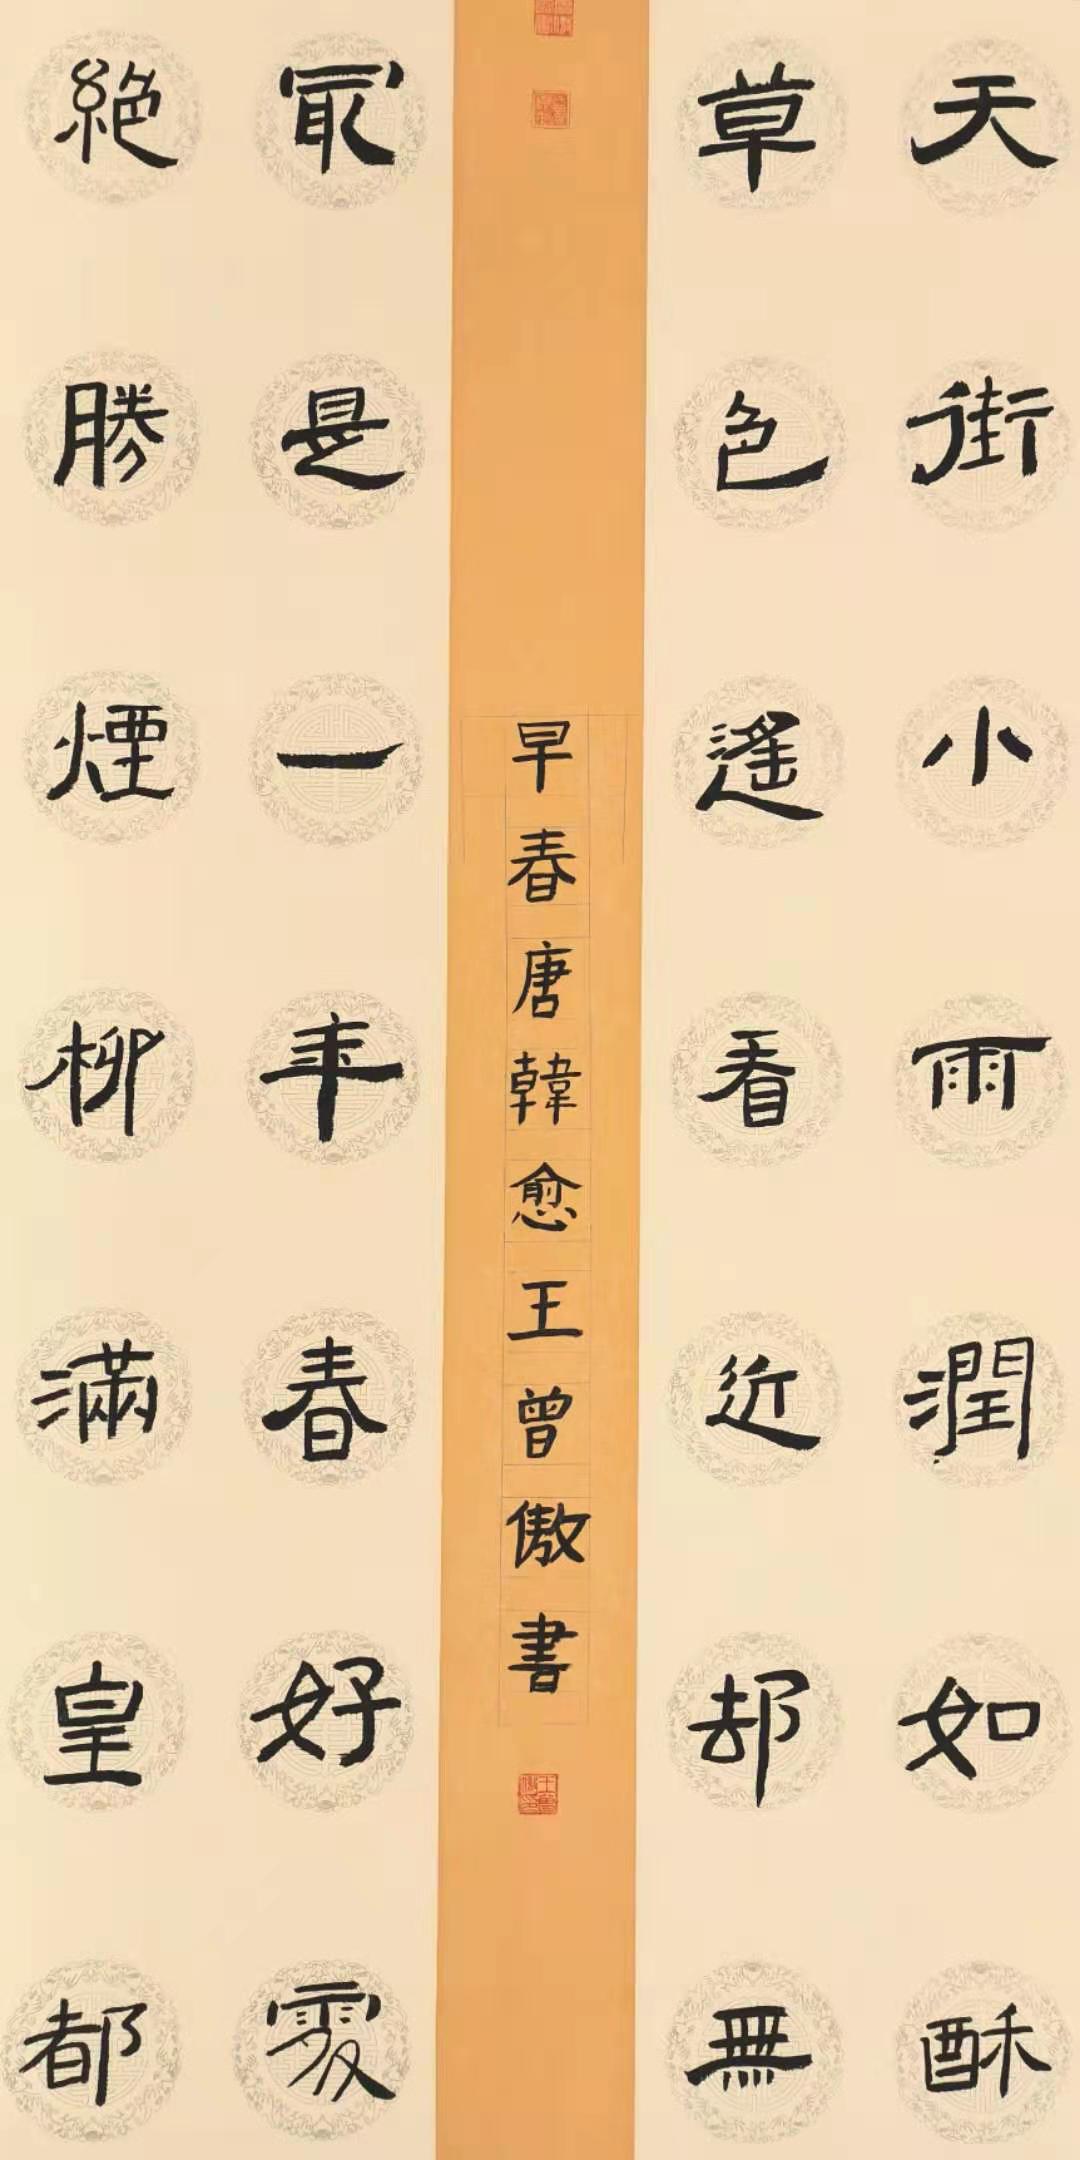 天街小雨潤如酥
草色遙看近却無
冣是一年春好處
絶勝煙柳滿皇都
早春唐韓愈王曾傲書